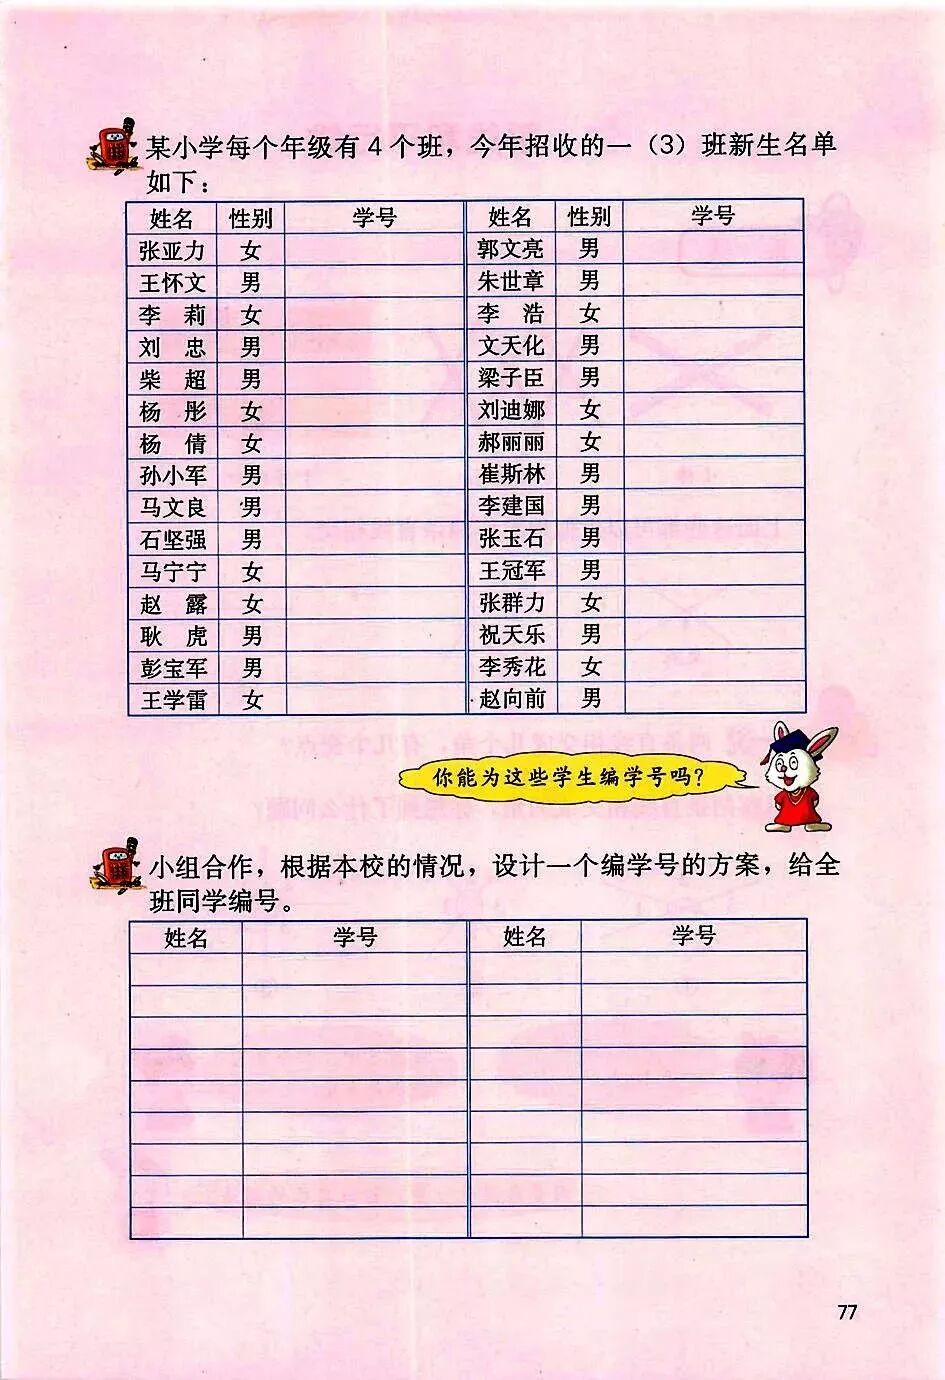 某小学每个年级有 4 个班，今年招收的一（3）班新生名单
如下：
姓名 性别 学号 姓名 性别 学号
张亚力 女 郭文亮 男
王怀文 男 朱世章 男
李 莉 女 李 浩 女
刘 忠 男 文天化 男
柴 超 男 梁子臣 男
杨 彤 女 刘迪娜 女
杨 倩 女 郝丽丽 女
孙小军 男 崔斯林 男
马文良 男 李建国 男
石坚强 男 张玉石 男
马宁宁 女 王冠军 男
赵 露 女 张群力 女
耿 虎 男 祝天乐 男
彭宝军 男 李秀花 女
王学雷 女 赵向前 男
你能为这些学生编学号吗？
小组合作，根据本校的情况，设计一个编学号的方案，给全
班同学编号。
姓名 学号 姓名 学号
77